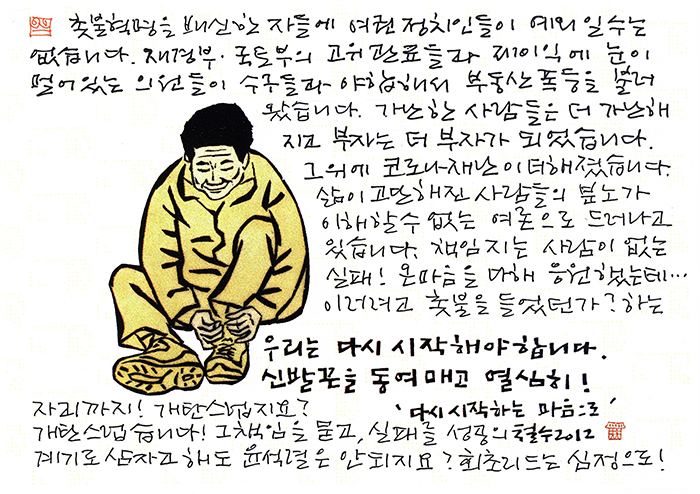 촛불혁명을 배신한 자들에 여권 정치인들이 예외일 수는
없습니다. 재경부·국토부의 고위관료들과 제이익에 눈이
멀어있는 의원들이 수구들과 야합해서 부동산 폭등을 불러
왔습니다. 가난한 사람들은 더 가난해
지고 부자는 더 부자가 되었습니다.
그위에 코로나재난이 더해졌습니다.
삶이 고단해진 사람들의 분노가
이해할수 없는 여론으로 드러나고
있습니다. 책임지는 사람이 없는
실패! 온마음을 다해 응원했는데…
이러려고 촛불을 들었던가? 하는
우리는 다시 시작해야합니다.
신발끈을 동여매고 열심히!
자리까지! 개탄스럽지요? '다시 시작하는 마음으로'
개탄스럽습니다! 그책임을 묻고, 실패를 성공의 철수2012
계기로 삼자고 해도 윤석열은 안되지요? 회초리드는 심정으로!